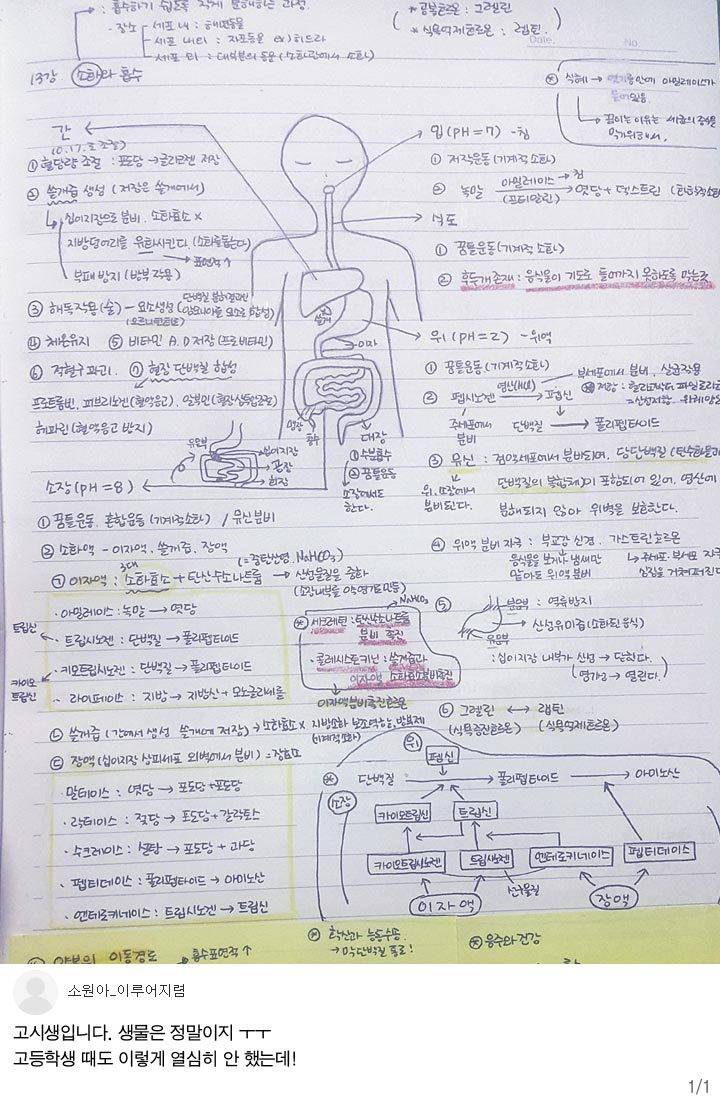 : 흡수하기 쉽도록 작게 분해하는 과정.
· 장소 - 세포 내 : 해면동물
- 세포 내·외 : 자포동물 ex)히드라
- 세포 외 : 대부분의 동물 (소화관에서 소화)
* 공복호르몬 : 그렐린
* 식욕억제호르몬 : 렙틴
Date. No.
13강. 소화와 흡수
* 식혜 → 엿기름안에 아밀레이스가
들어있음
끓이는 이유는 세균의 증식을
막기위해서.
간
① 혈당량 조절 : 포도당 → 글리코젠 저장
② 쓸개즙 생성 (저장은 쓸개에서)
십이지장으로 분비. 소화효소 X
지방덩어리를 유화시킨다. (소화를돕는다)
표면적 ↑
부패 방지 (방부작용)
③ 해독작용 (술) - 요소생성
④ 체온유지 ⑤ 비타민 A.D 저장 (프로비타민)
⑥ 적혈구 파괴. ⑦ 혈장 단백질 합성
프로트롬빈, 피브리노젠 (혈액응고), 알부민
헤파린 (혈액응고 방지)
입 (pH=7) - 침
① 저작운동 (기계적 소화)
② 녹말 아밀레이스 → 엿당 + 덱스트린
침
(프티알린)
식도
① 꿈틀운동 (기계적 소화)
② 후두개 존재 : 음식물이 기도로 들어가지 못하도록 막는것
위 (pH=2) - 위액
① 꿈틀운동 (기계적소화)
② 펩시노젠 염산(HCl) 펩신
부세포에서 분비, 살균작용
주세포에서
분비
단백질 → 폴리펩타이드
③ 뮤신 : 점액세포에서 분비되며, 당단백질
위, 소장에서
분비된다.
단백질의 복합체)이 포함되어 있어, 염산에
분해되지 않아 위벽을 보호한다.
④ 위액 분비 자극 : 부교감 신경, 가스트린호르몬
음식물을 보거나 냄새만
맡아도 위액 분비
쓸개
이자
맹장
항문
대장
① 수분흡수
② 꿈틀운동
소장에서도
한다.
유문부
십이지장
공장
회장
소장 (pH=8)
① 꿈틀운동, 혼합운동 (기계적소화) / 뮤신분비
② 소화액 - 이자액, 쓸개즙, 장액
(=중탄산염, NaHCO₃)
㉠ 이자액 : 소화효소 + 탄산수소나트륨 → 산성물질을 중화
3대
트립신
카이모
트립신
· 아밀레이스 : 녹말 → 엿당
· 트립시노젠 : 단백질 → 폴리펩타이드
· 키모트립시노젠 : 단백질 → 폴리펩타이드
· 라이페이스 : 지방 → 지방산 + 모노글리세롤
NaHCO₃
* 세크레틴 : 탄산수소나트륨
분비 촉진
· 콜레시스토키닌 : 쓸개즙과
이자액 소화효소분비촉진
이자액분비촉진호르몬
⑤
분문 : 역류방지
산성유미즙 (소화된음식)
유문부
: 십이지장 내부가 산성 → 닫힌다.
염기성 → 열린다.
⑥ 그렐린 ↔ 렙틴
(식욕증진호르몬) (식욕억제호르몬)
㉡ 쓸개즙 (간에서 생성 쓸개에 저장) → 소화효소 X 지방소화 보조역할, 방부제
㉢ 장액 (십이지장 상피세포 외벽에서 분비) = 장효소
· 말테이스 : 엿당 → 포도당+포도당
· 락테이스 : 젖당 → 포도당+갈락토스
· 수크레이스 : 설탕 → 포도당 + 과당
· 펩티데이스 : 폴리펩타이드 → 아미노산
· 엔테로키네이스 : 트립시노젠 → 트립신
위
펩신
* 단백질 → 폴리펩타이드 → 아미노산
소장
카이모트립신 트립신
카이모트립시노젠 트립시노젠 엔테로키네이스 펩티데이스
이자액 장액
양분의 이동경도 → 흡수표면적 ↑
* 확산과 능동수송.
→ 막단백질 통로!
* 음주와 건강
소원아_이루어지렴
고시생입니다. 생물은 정말이지 ㅜㅜ
고등학생 때도 이렇게 열심히 안 했는데!
1/1